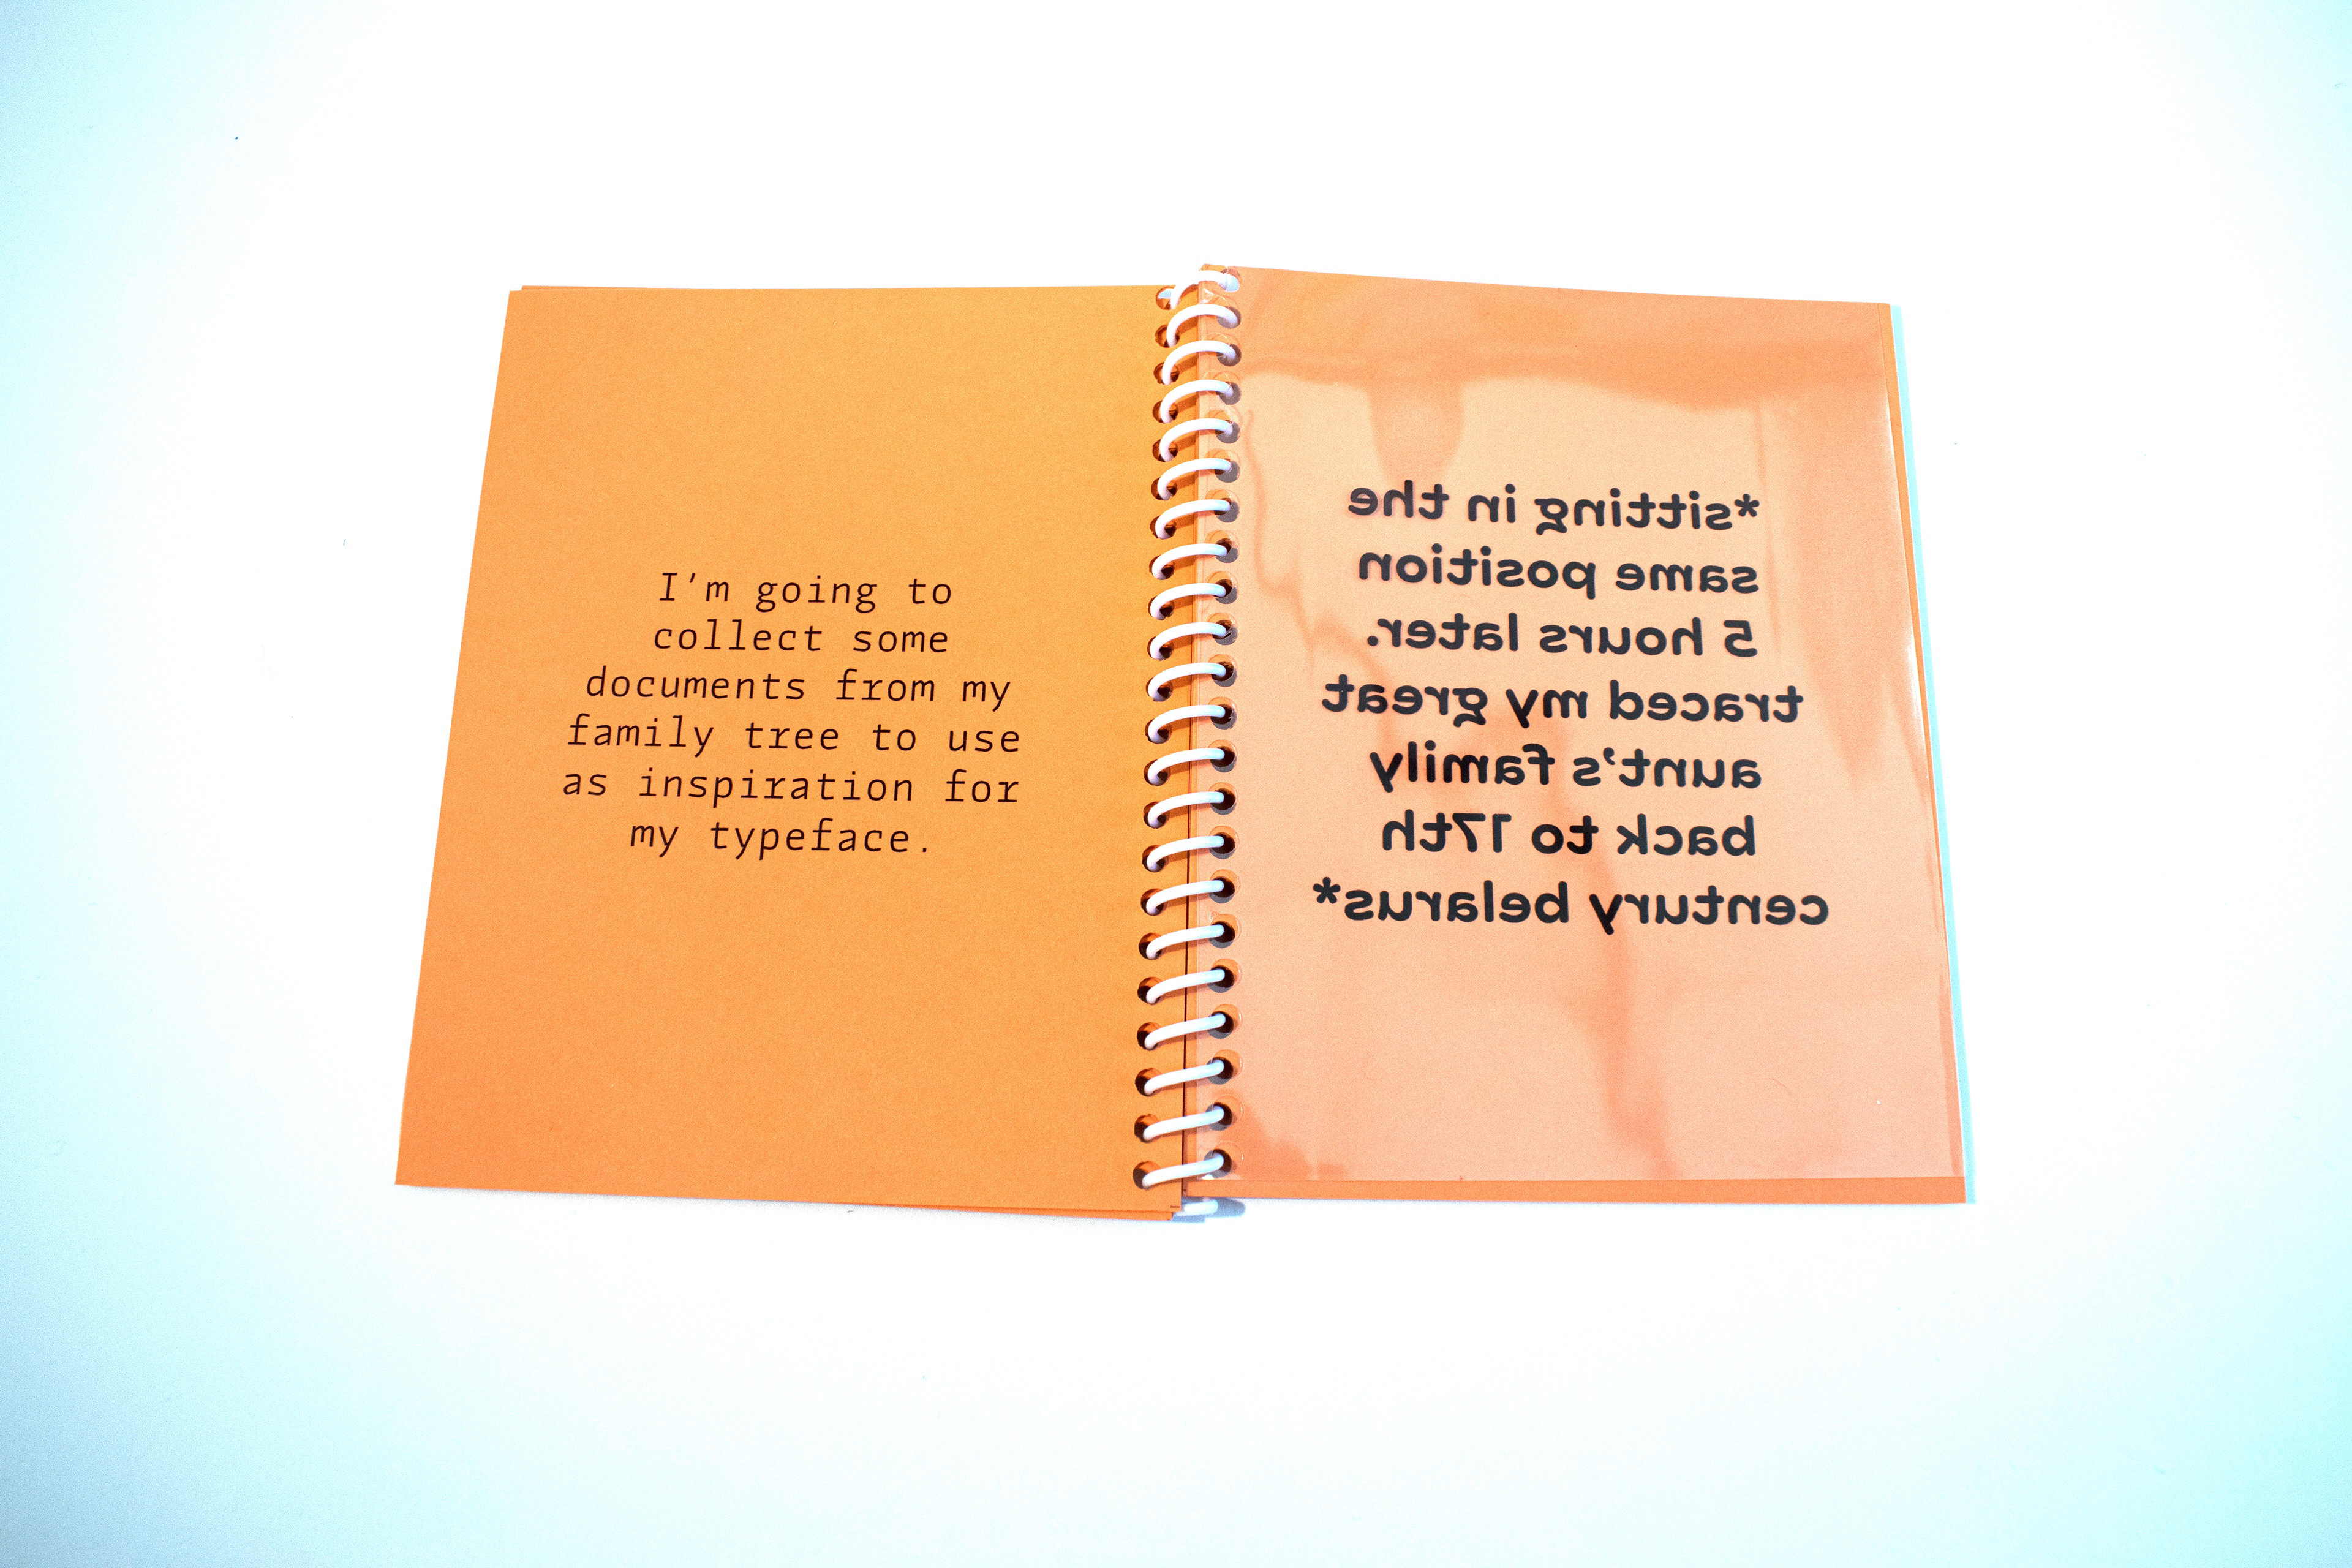 I'm going to
collect some
documents from my
family tree to use
as inspiration for
my typeface.
*sitting in the
same position
5 hours later.
traced my great
aunt's family
back to 17th
century belarus*